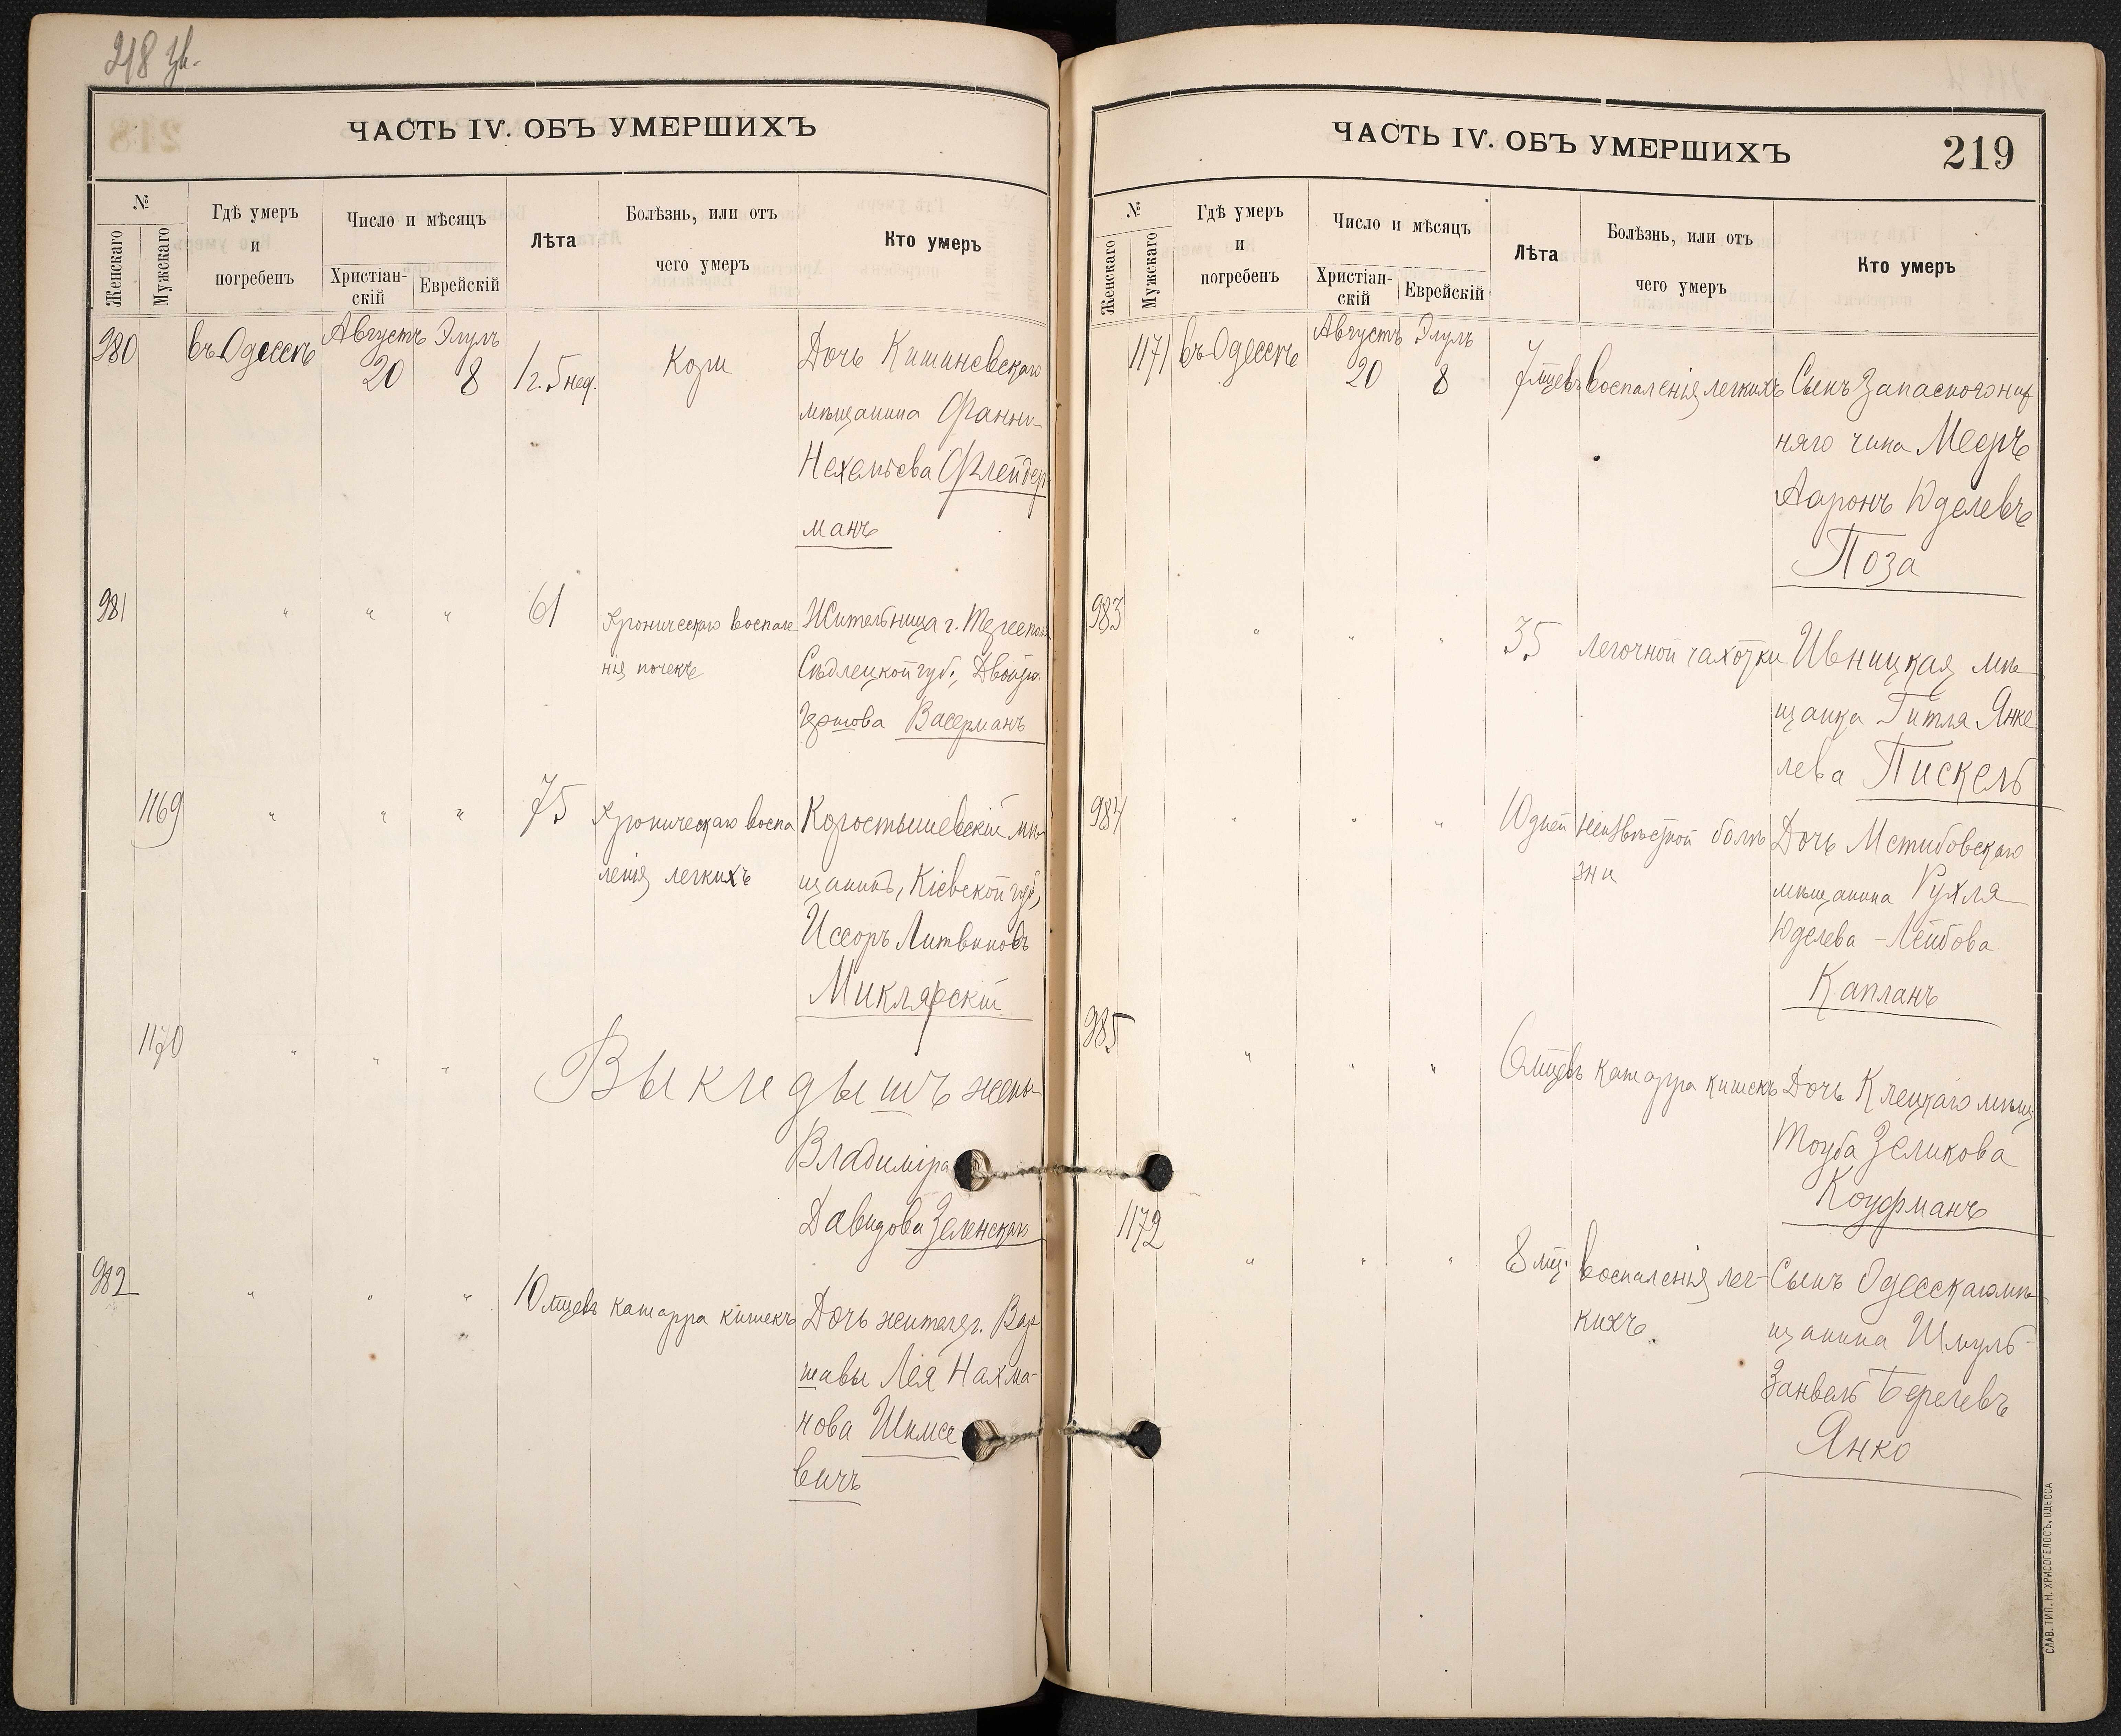 218 зв.
ЧАСТЬ IV. ОБЪ УМЕРШИХЪ
№
Женскаго
Мужскаго
Гдѣ умеръ
и
погребенъ
Число и мѣсяцъ
Христіан-
скій
Еврейскій
Лѣта
Болѣзнь, или отъ
чего умеръ
Кто умеръ
980
въ Одессѣ
Августъ Элулъ
20 8
1 г. 5 нед.
Кори
Дочь Кишиневскаго
мѣщанина Фанни
Нехемьева Флейдер-
манъ
981
" " "
61
Хроническаго воспале
нія почекъ
Жительница г.
Сѣдлецкой губ., Двойра
Гершова Васерманъ
1169
" " "
75
Хроническаго воспа
ленія легкихъ
Коростышевскій мѣ-
щанинъ, Кіевской губ,
Иссоръ Литвиновъ
Миклярскій
1170
" " "
Выкидышъ жены
Владиміра
Давидова Зеленскаго
982
" " "
10 мцевъ
катарра кишекъ
Дочь жителя г. Вар
шавы Лея Нахма-
нова Шимсе
вичъ
ЧАСТЬ IV. ОБЪ УМЕРШИХЪ
219
№
Женскаго
Мужскаго
Гдѣ умеръ
и
погребенъ
Число и мѣсяцъ
Христіан-
скій
Еврейскій
Лѣта
Болѣзнь, или отъ
чего умеръ
Кто умеръ
1171
въ Одессѣ
Августъ Элулъ
20 8
7 мцевъ
воспаленія легкихъ
Сынъ запасного ниж
няго чина Мееръ
Ааронъ Юделевъ
Поза
983
" " "
35
легочной чахотки
Ивницкая мѣ
щанка Гитля Янке
лева Пискель
984
" " "
10 дней
неизвѣстной болѣ
зни
Дочь Мстибовскаго
мѣщанина Рухля
Юделева - Лейбова
Капланъ
985
" " "
6 мцевъ
катарра кишекъ
Дочь Клецкаго мѣщ.
Тоуба Зеликова
Коуфманъ
1172
" " "
8 мц.
воспаленія лег-
кихъ.
Сынъ Одесскаго мѣ-
щанина Шмуль-
Занвель Берелевъ
Янко
СЛАВ. ТИП. Н. ХРИСОГЕЛОСЪ, ОДЕССА